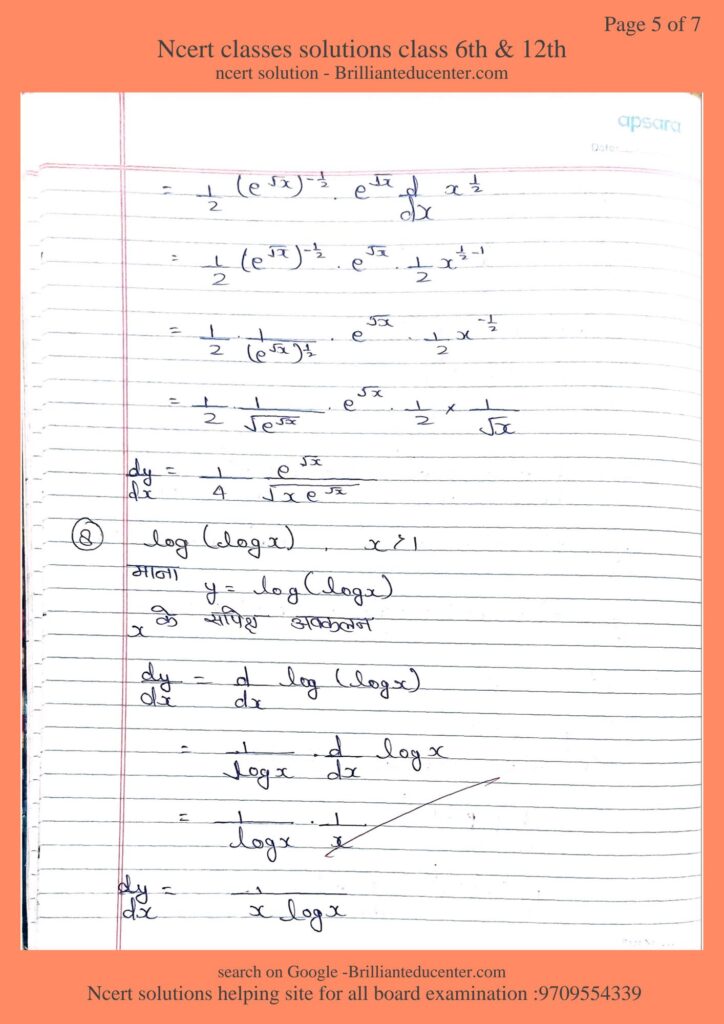 Page 5 of 7
Ncert classes solutions class 6th & 12th
ncert solution - Brillianteducenter.com
apsara
Date:
= 1/2 (e^√x)^-1/2 . e^√x d/dx x^1/2
= 1/2 (e^√x)^-1/2 . e^√x . 1/2 x^1/2-1
= 1/2 . 1/(e^√x)^1/2 . e^√x . 1/2 x^-1/2
= 1/2 . 1/√e^√x . e^√x . 1/2 × 1/√x
dy/dx = 1/4 e^√x/√x e^√x
⑧ log (log x) , x > 1
माना y = log (log x)
x के सापेक्ष अवकलन
dy/dx = d/dx log (log x)
= 1/log x . d/dx log x
= 1/log x . 1/x
dy/dx = 1/x log x
search on Google -Brillianteducenter.com
Ncert solutions helping site for all board examination :9709554339